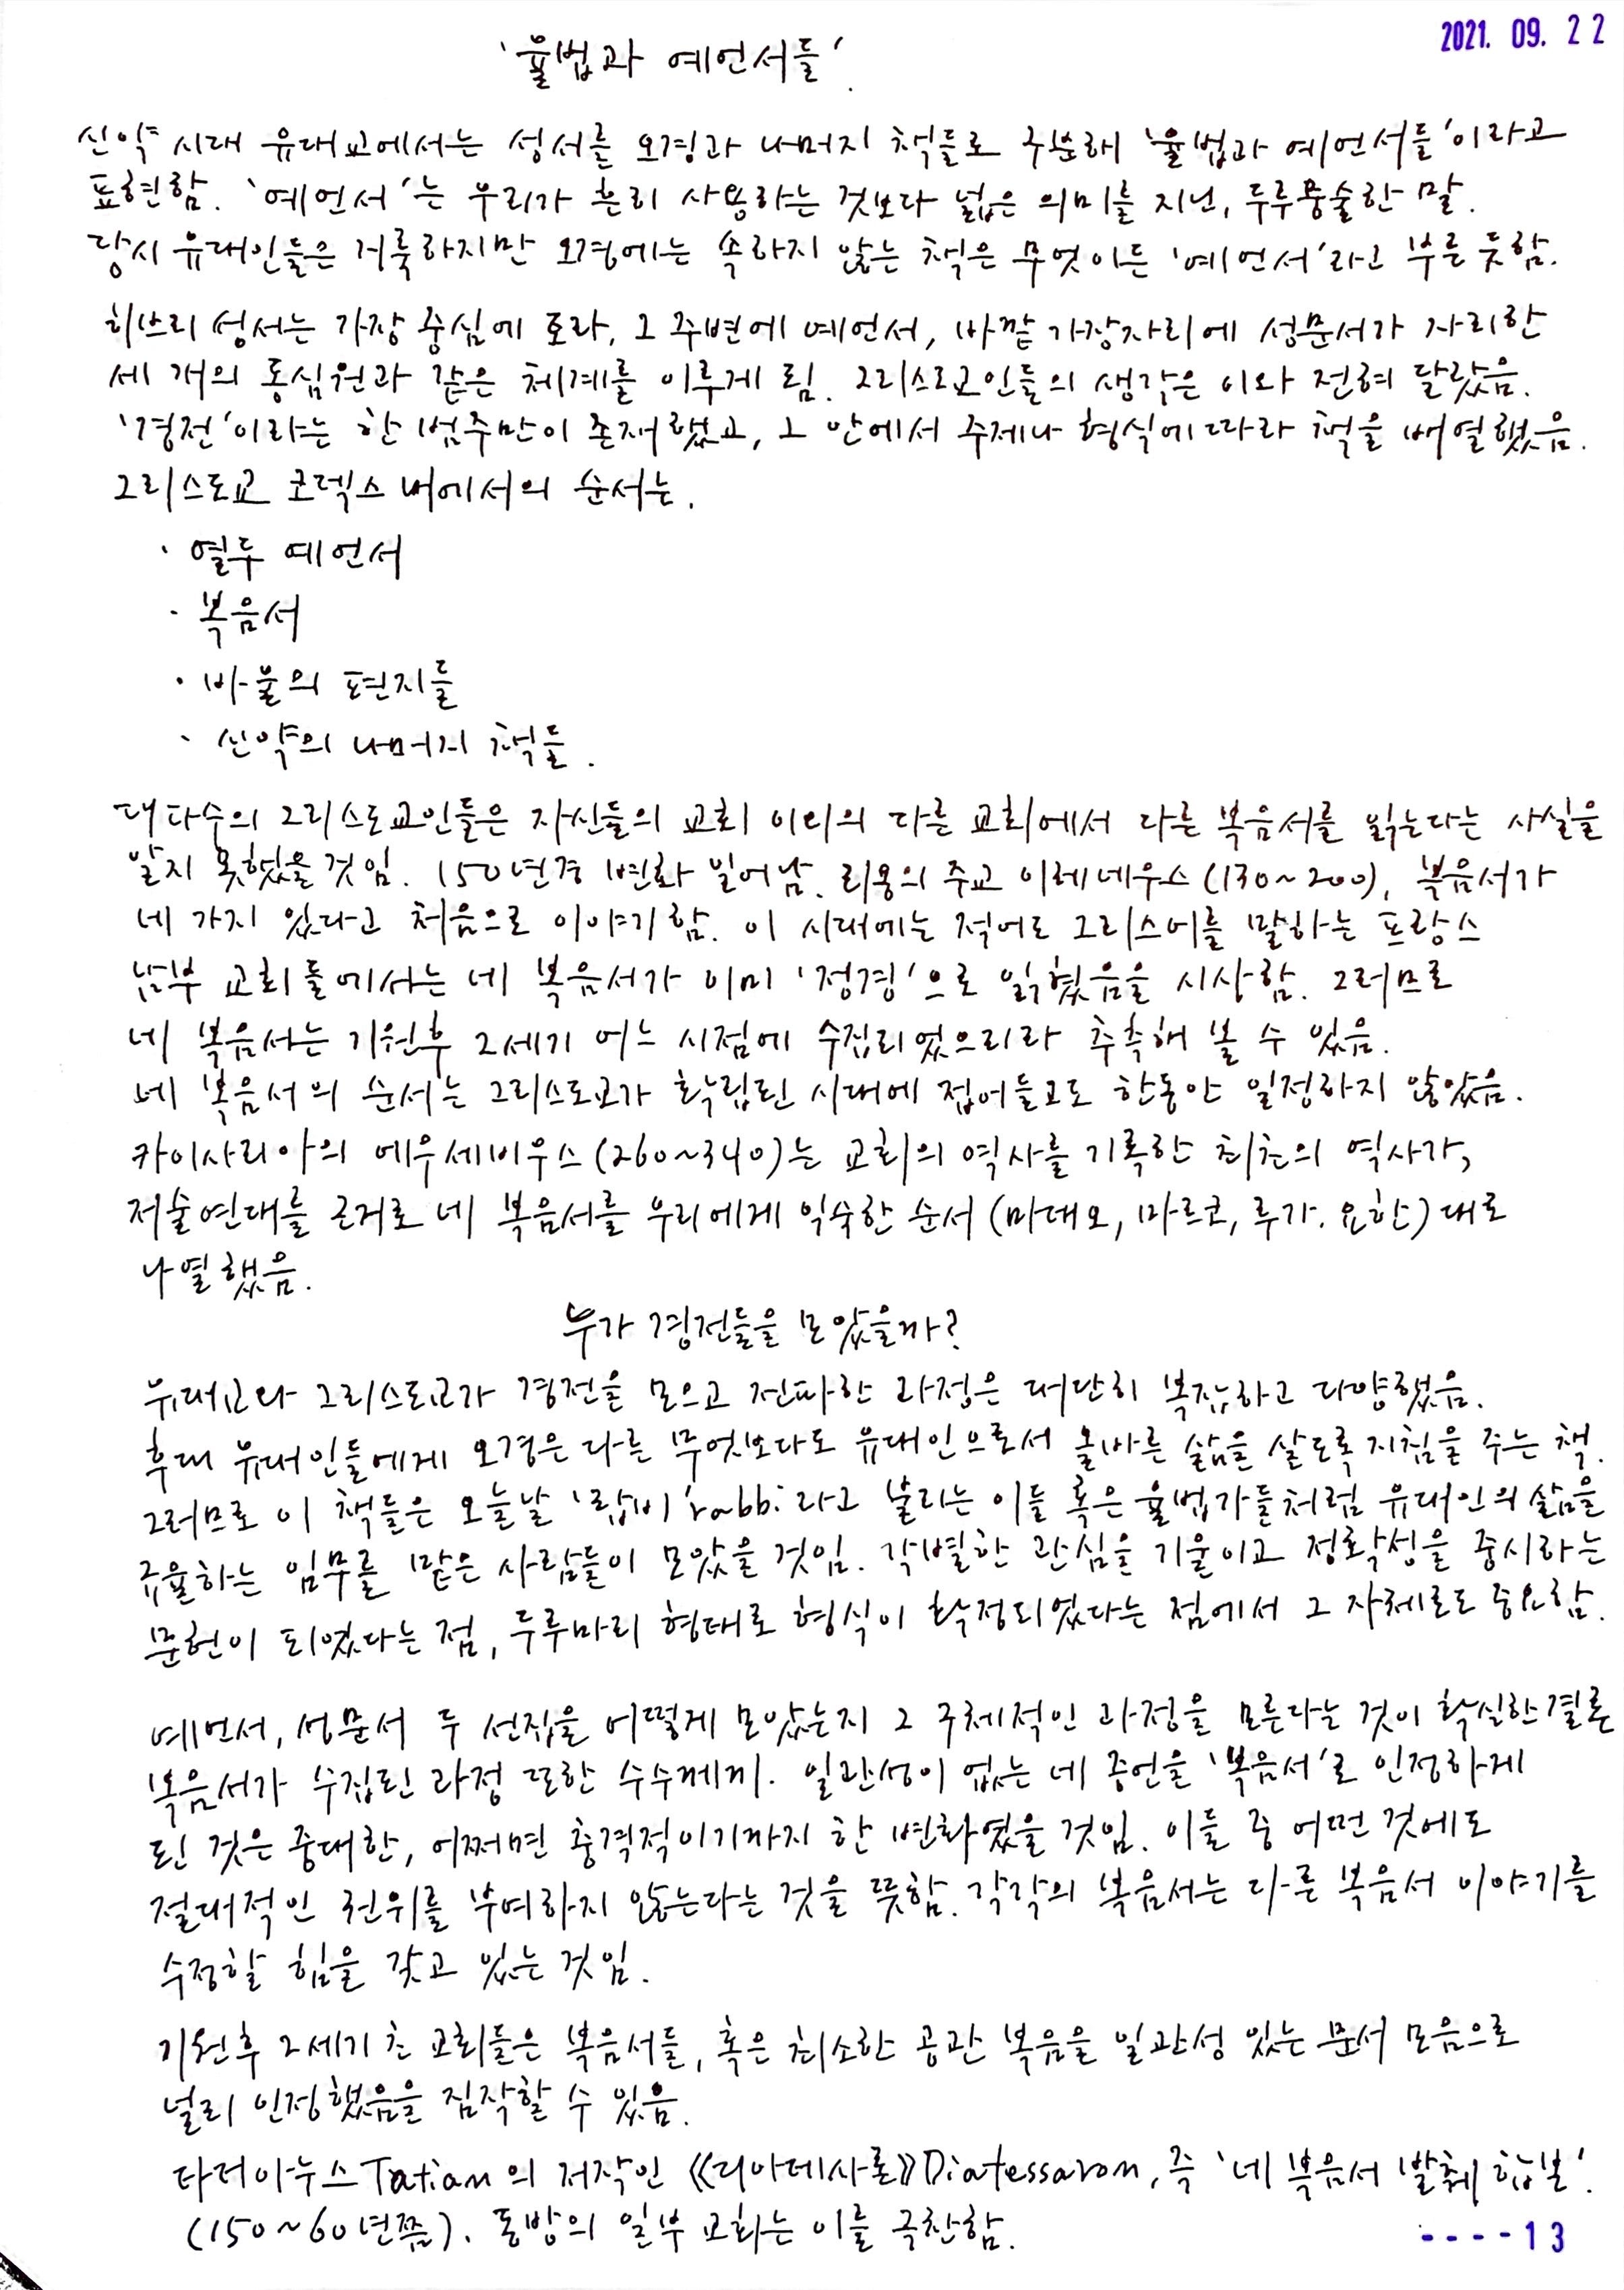 2021. 09. 22
'율법과 예언서들'.
신약 시대 유대교에서는 성서를 오경과 나머지 책들로 구분해 '율법과 예언서들'이라고
표현함. '예언서'는 우리가 흔히 사용하는 것보다 넓은 의미를 지닌, 두루뭉술한 말.
당시 유대인들은 거룩하지만 오경에는 속하지 않는 책은 무엇이든 '예언서'라고 부른 듯함.
히브리 성서는 가장 중심에 토라, 그 주변에 예언서, 바깥 가장자리에 성문서가 자리한
세 개의 동심원과 같은 체계를 이루게 됨. 그리스도교인들의 생각은 이와 전혀 달랐음.
'경전'이라는 한 범주만이 존재했고, 그 안에서 주제나 형식에 따라 책을 배열했음.
그리스도교 코덱스 내에서의 순서는,
· 열두 예언서
· 복음서
· 바울의 편지들
· 신약의 나머지 책들.
대다수의 그리스도교인들은 자신들의 교회 이외의 다른 교회에서 다른 복음서를 읽는다는 사실을
알지 못했을 것임. 150년경 변화 일어남. 리옹의 주교 이레네우스(130~200), 복음서가
네 가지 있다고 처음으로 이야기함. 이 시대에는 적어도 그리스어를 말하는 프랑스
남부 교회들에서는 네 복음서가 이미 '정경'으로 읽혔음을 시사함. 그러므로
네 복음서는 기원후 2세기 어느 시점에 수집되었으리라 추측해 볼 수 있음.
네 복음서의 순서는 그리스도교가 확립된 시대에 접어들고도 한동안 일정하지 않았음.
카이사리아의 에우세비우스(260~340)는 교회의 역사를 기록한 최초의 역사가,
저술연대를 근거로 네 복음서를 우리에게 익숙한 순서(마태오, 마르코, 루가. 요한)대로
나열했음.
누가 경전들을 모았을까?
유대교와 그리스도교가 경전을 모으고 전파한 과정은 대단히 복잡하고 다양했음.
후대 유대인들에게 오경은 다른 무엇보다도 유대인으로서 올바른 삶을 살도록 지침을 주는 책.
그러므로 이 책들은 오늘날 '랍비'rabbi라고 불리는 이들 혹은 율법가들처럼 유대인의 삶을
규율하는 임무를 맡은 사람들이 모았을 것임. 각별한 관심을 기울이고 정확성을 중시하는
문헌이 되었다는 점, 두루마리 형태로 형식이 확정되었다는 점에서 그 자체로도 중요함.
예언서, 성문서 두 선집을 어떻게 모았는지 그 구체적인 과정을 모른다는 것이 확실한 결론
복음서가 수집된 과정 또한 수수께끼. 일관성이 없는 네 증언을 '복음서'로 인정하게
된 것은 중대한, 어쩌면 충격적이기까지 한 변화였을 것임. 이들 중 어떤 것에도
절대적인 권위를 부여하지 않는다는 것을 뜻함. 각각의 복음서는 다른 복음서 이야기를
수정할 힘을 갖고 있는 것임.
기원후 2세기 초 교회들은 복음서들, 혹은 최소한 공관 복음을 일관성 있는 문서 모음으로
널리 인정했음을 짐작할 수 있음.
타티아누스Tatian의 저작인 《디아테사론》Diatessaron, 즉 '네 복음서 발췌 합본'.
(150~60년쯤). 동방의 일부 교회는 이를 극찬함.
----13